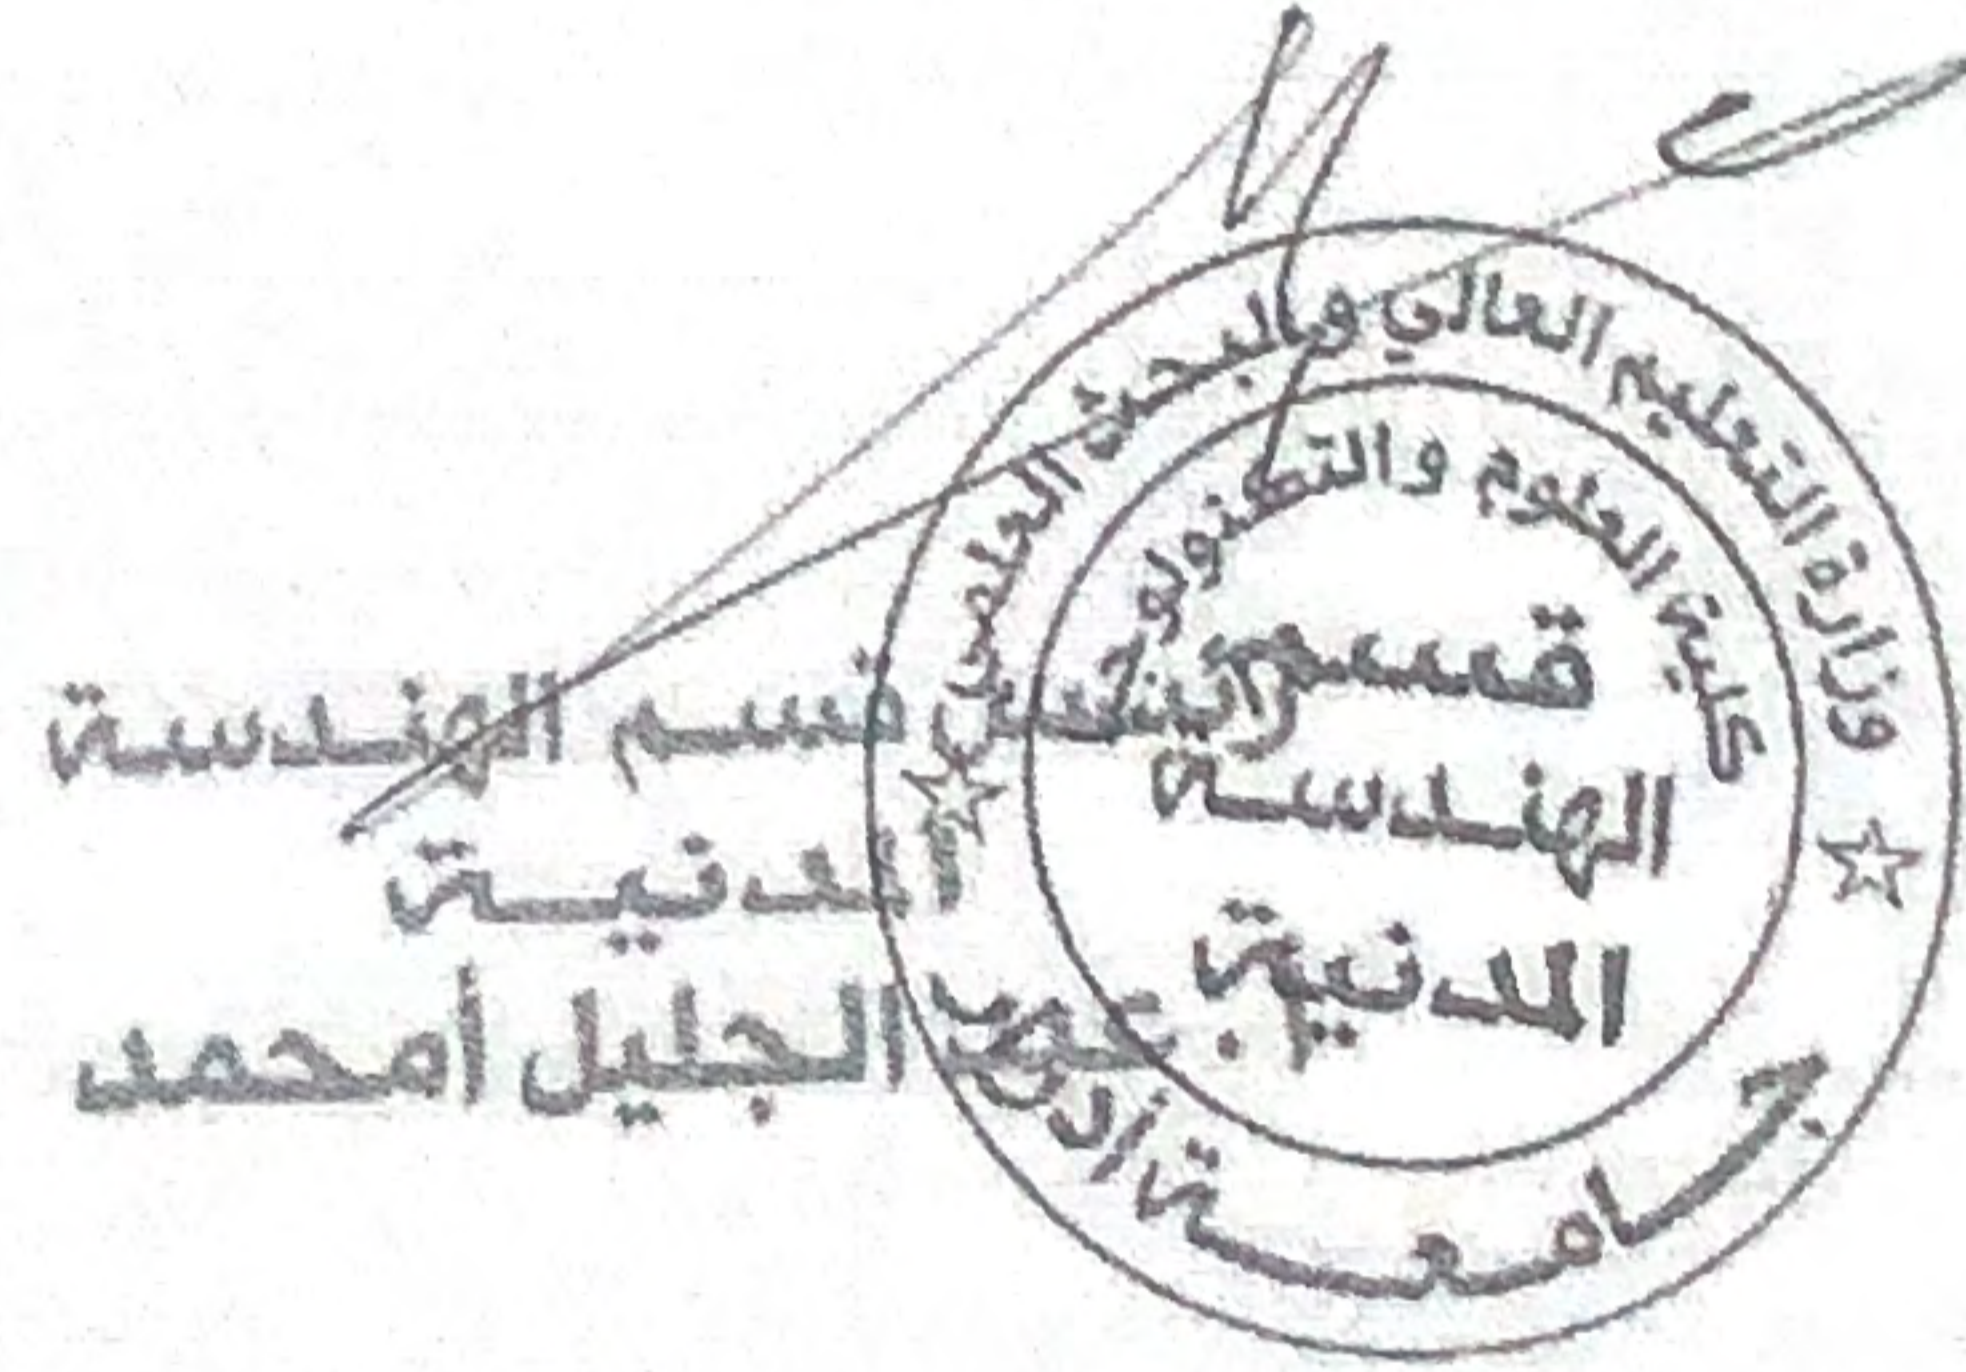 وزارة التعليم العالي والبحث العلمي
كلية العلوم والتكنولوجيا
قسم
الهندسة
المدنية
جامعة
رئيس قسم الهندسة
المدنية
عبد الجليل أمحمد